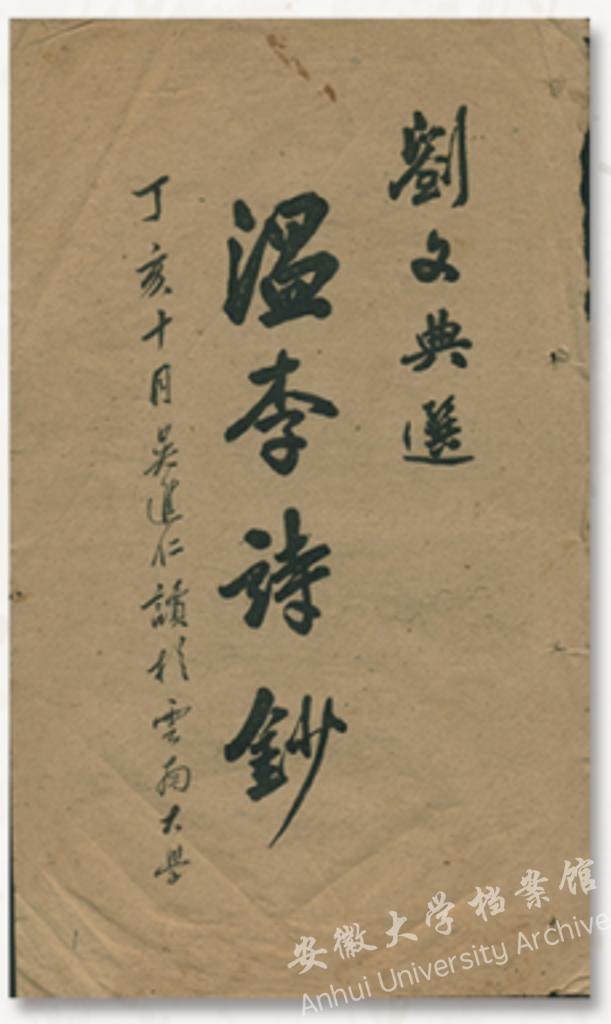 劉文典選
溫李詩鈔
丁亥十月吴進仁讀於雲南大學
安徽大学档案馆
Anhui University Archive